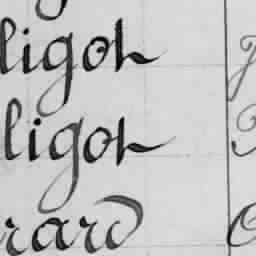 ligot
ligot
rard